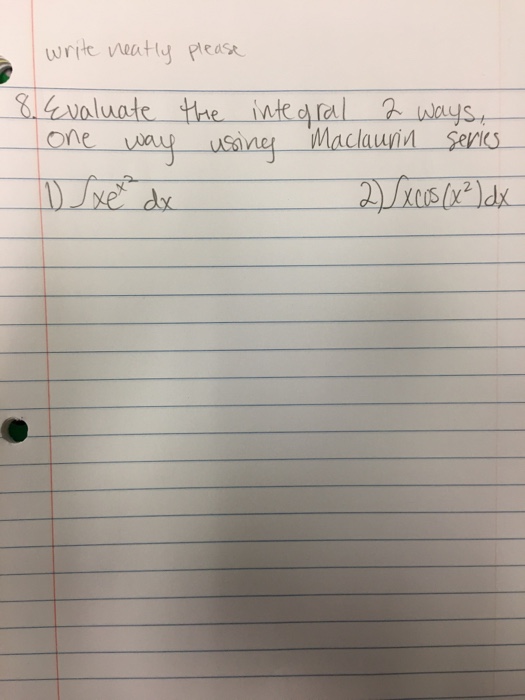 write neatly please
8. Evaluate the integral 2 ways,
one way using Maclaurin series
1) ∫xe^x² dx 2) ∫xcos(x²)dx